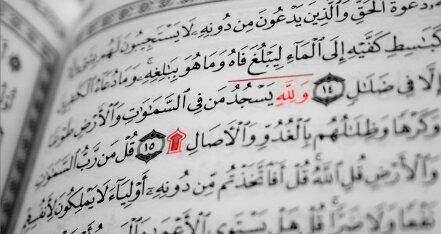 دَعْوَةُ ٱلْحَقِّ وَٱلَّذِينَ يَدْعُونَ مِن دُونِهِۦ لَا يَسْتَجِيبُونَ لَهُم بِشَىْءٍ
كَبَٰسِطِ كَفَّيْهِ إِلَى ٱلْمَآءِ لِيَبْلُغَ فَاهُ وَمَا هُوَ بِبَٰلِغِهِۦ وَمَا دُعَآءُ ٱلْكَٰفِرِينَ
إِلَّا فِى ضَلَٰلٍ ١٤ وَلِلَّهِ يَسْجُدُ مَن فِى ٱلسَّمَٰوَٰتِ وَٱلْأَرْضِ طَوْعًا
وَكَرْهًا وَظِلَٰلُهُم بِٱلْغُدُوِّ وَٱلْءَاصَالِ ۩ ١٥ قُلْ مَن رَّبُّ ٱلسَّمَٰوَٰتِ
وَٱلْأَرْضِ قُلِ ٱللَّهُ قُلْ أَفَٱتَّخَذْتُم مِّن دُونِهِۦٓ أَوْلِيَآءَ لَا يَمْلِكُونَ لِأَنفُسِهِمْ
نَفْعًا وَلَا ضَرًّا قُلْ هَلْ يَسْتَوِى ٱلْأَعْمَىٰ